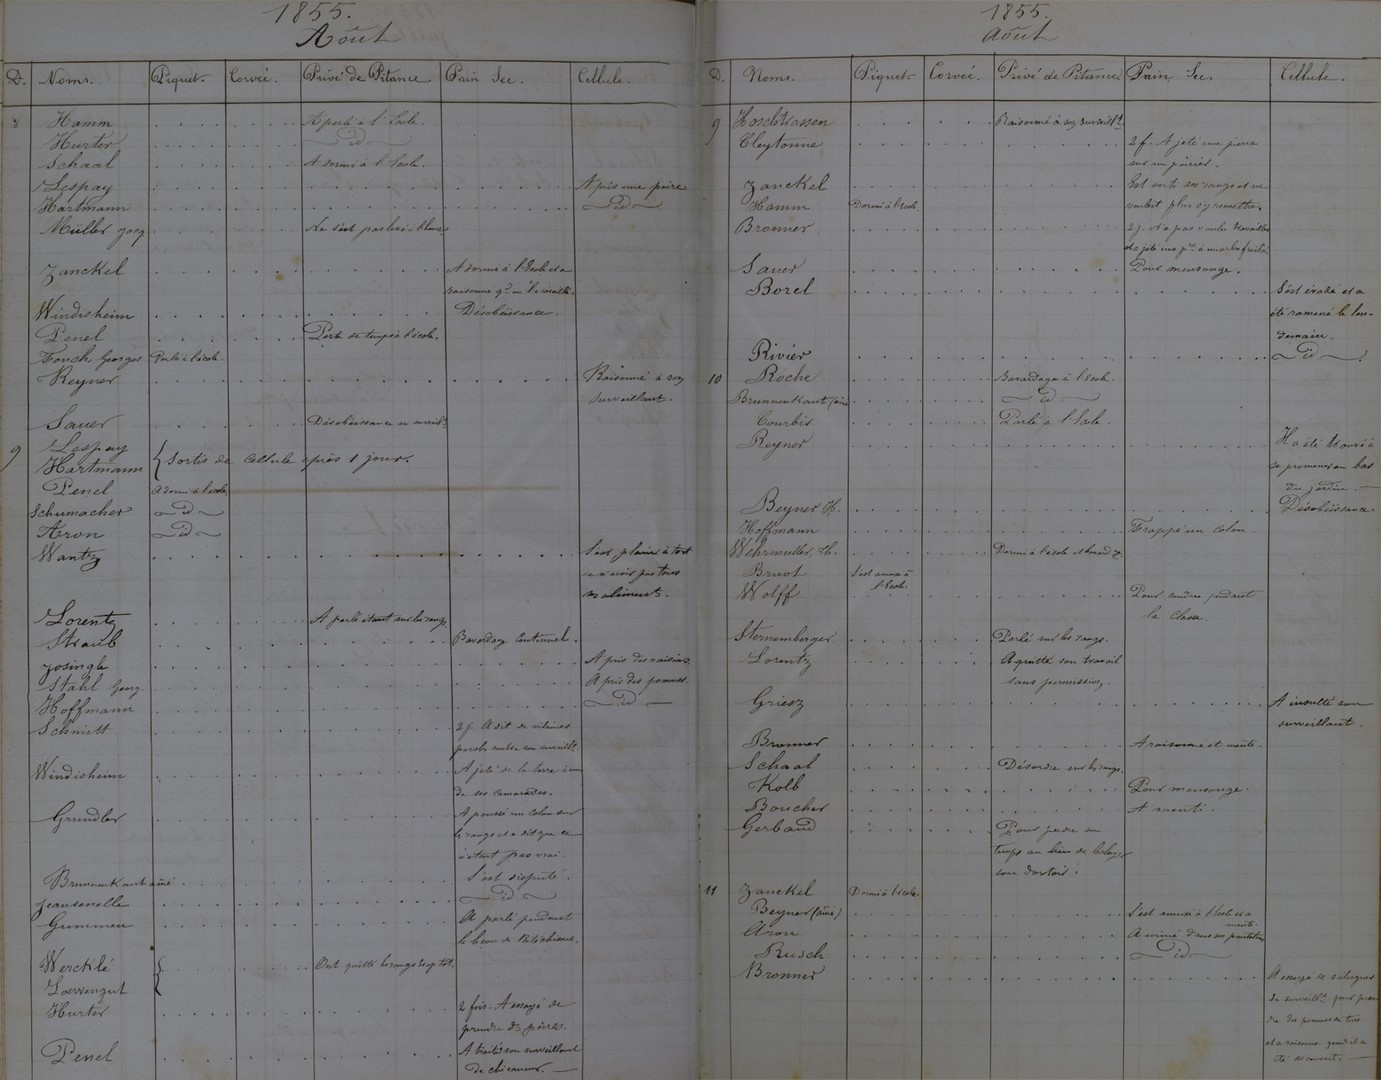 1855.
Août
D. Noms. Piquet. Corvée. Privé de Pitance Pain Sec. Cellule.
8 Hamm A parlé à l'École.
Hurter id
Schaal A dormi à l'École.
Lespay A pris une poire
Hartmann id
Müller Jacq Ne s'est pas levé à l'heure
Zanckel A dormi à l'École et a
raisonné qd on l'a
Windisheim Désobéissance.
Penel Perte de temps à l'école.
Fouch Georges Parlé à l'école.
Reyner Raisonné à son
surveillant.
Sauer Désobéissance au surveillt
9 Lespay
Hartmann } Sortis de cellule après 1 jour.
Penel A dormi à l'école
Schumacher id
Aron id
Wantz S'est plaint à tort
de n'avoir pas tous
ses aliments.
Lorentz A parlé étant sur les rangs.
Straub Bavardage continuel.
Josingle A pris des raisins.
Stahl Georg. A pris des pommes.
Hoffmann id
Schmitt 2 j. A dit de vilaines
paroles contre son surveillt
Windisheim A jeté de la terre à un
de ses camarades.
Grundler A poussé un colon sur
les rangs et a dit que ce
n'était pas vrai.
Brunnenkant ainé S'est disputé.
Jeansenelle id
Gummen A parlé pendant
Wercklé Ont quitté les rangs trop tôt.
Loewengut
Hurter 2 fois. A essayé de
prendre des poires.
Penel A traité son surveillant
de chicaneur.
1855.
Août
D. Noms. Piquet. Corvée. Privé de Pitance Pain Sec. Cellule.
9 Hoschkassen Raisonné à son surveillt.
Cleytonne 2 f. A jeté une pierre
sur un poirier.
Zanckel Est sorti des rangs et ne
Hamm Dormi à l'école. voulait plus s'y remettre.
Bronner 2 j. N'a pas voulu travailler
et a jeté une pre à un arbre fruitier
Sauer Pour mensonge.
Borel S'est évadé et a
été ramené le len-
demain.
Rivier id
10 Roche Bavardage à l'école.
Brunnenkant (ainé id
Courbis Parlé à l'École.
Reyner Ha été trouvé à
se promener au bas
du jardin.
Beyner H. Désobéissance.
Hoffmann Frappé un colon
Wehrmuller Th. Dormi à l'école
Bruot S'est amusé à
l'École.
Wolff Pour coudre pendant
la classe.
Sternemberger Parlé sur les rangs.
Lorentz A quitté son travail
sans permission.
Griesz A insulté son
surveillant.
Bronner A raisonné et menti.
Schaal Désordre sur les rangs.
Kolb Pour mensonge.
Boucher A menti.
Gerbaud Pour perdre son
temps au lieu de balayer
son dortoir.
11 Zanckel Dormi à l'école.
Beyner (ainé) S'est amusé à l'École et a
menti.
Aron A uriné dans son pantalon
Rusch id
Bronner A essayé de s'éloigner
du surveillt. pour pren-
dre des pommes de terre
et a raisonné quand il a
été découvert.